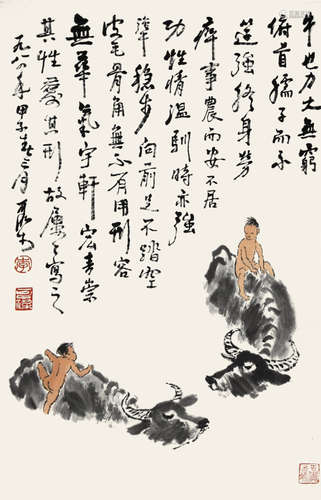 牛也力大無窮
俯首孺子而不
逞強終身勞
瘁事農而安不居
功性情溫馴時亦強
犟穩步向前足不踏空
皮毛骨角無不有用形容
無華氣宇軒宏吾崇
其性愛其形故屢屢寫之
一九八四年甲子春三月可染